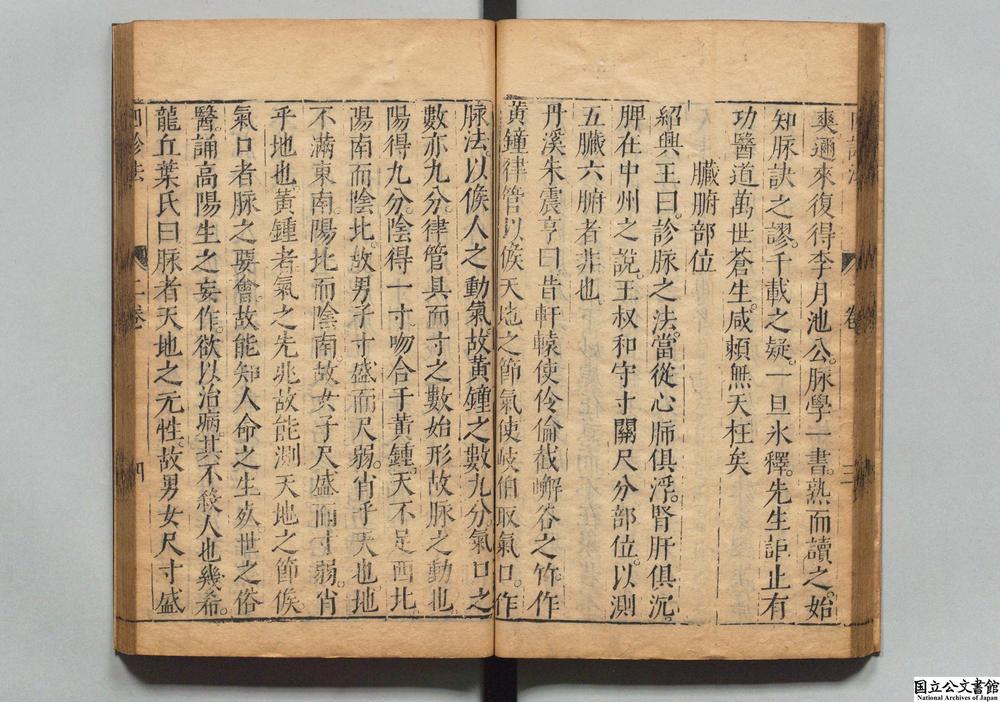 爽邇來復得李月池公脉學一書熟而讀之始
知脉訣之謬千載之疑一旦氷釋先生詎止有
功醫道萬世蒼生咸頼無夭枉矣
臟腑部位
紹興王曰診脉之法當從心肺俱浮腎肝俱沉
脾在中州之說王叔和守寸關尺分部位以測
五臟六腑者非也
丹溪朱震亨曰昔軒轅使伶倫截嶰谷之竹作
黃鐘律管以候天地之節氣使岐伯取氣口作
脉法以候人之動氣故黃鐘之數九分氣口之
數亦九分律管具而寸之數始形故脉之動也
陽得九分陰得一寸吻合于黃鍾天不足西北
陽南而陰北故男子寸盛而尺弱肖乎天也地
不滿東南陽北而陰南故女子尺盛而寸弱肖
乎地也黃鍾者氣之先兆故能測天地之節候
氣口者脉之要會故能知人命之生死世之俗
醫誦高陽生之妄作欲以治病其不殺人也幾希
龍丘葉氏曰脉者天地之元性故男女尺寸盛
四診法
二卷
四